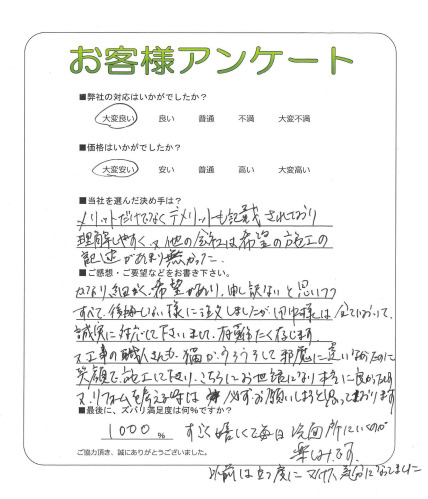 お客様アンケート
■弊社の対応はいかがでしたか?
大変良い 良い 普通 不満 大変不満
■価格はいかがでしたか?
大変安い 安い 普通 高い 大変高い
■当社を選んだ決め手は?
メリットだけでなくデメリットも記載されており
理解しやすく、又他の会社は希望の施工の
記述があまり無かった。
■ご感想・ご要望などをお書き下さい。
かなり細かく希望があり、申し訳ないと思いつつ
すべて、後悔しない様に注文しましたが 様は全てにおいて、
誠実に対応して下さいまして、有難たく存じます。
又工事の職人さんも、猫がうろうろして邪魔に違いなかったのに
笑顔で施工して下さり、こちらこそお世話になり本当に良かったです
又、リフォームを考える時は 必ずお願いしようと思っております
■最後に、ズバリ満足度は何%ですか?
1000 %
すごく嬉しくて毎日 洗面所にいくのが
楽しみです。
ご協力頂き、誠にありがとうございました。
以前は立つ度にマイナス気分になってました